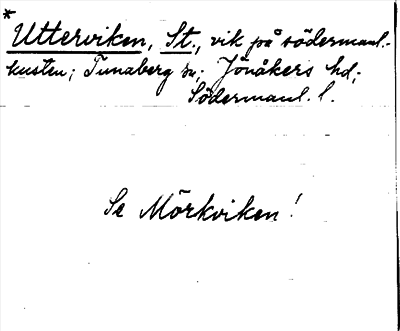 *
Utterviken, St., vik på södermanl.-
kusten; Tunaberg sn; Jönåkers hd;
Södermanl. l.
Se Mörkviken!